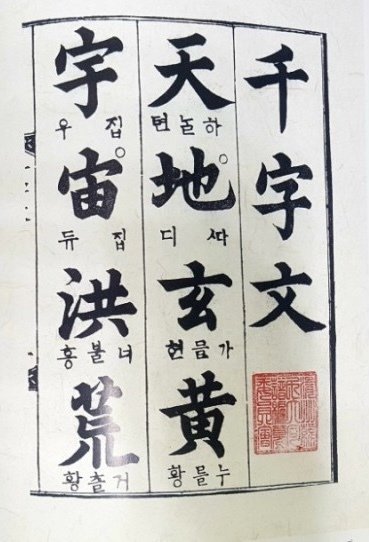 千字文
天
하놀텬
地
ᄯᅡ디
玄
가믈현
黃
누를황
宇
집우
宙
집듀
洪
너블홍
荒
거츨황